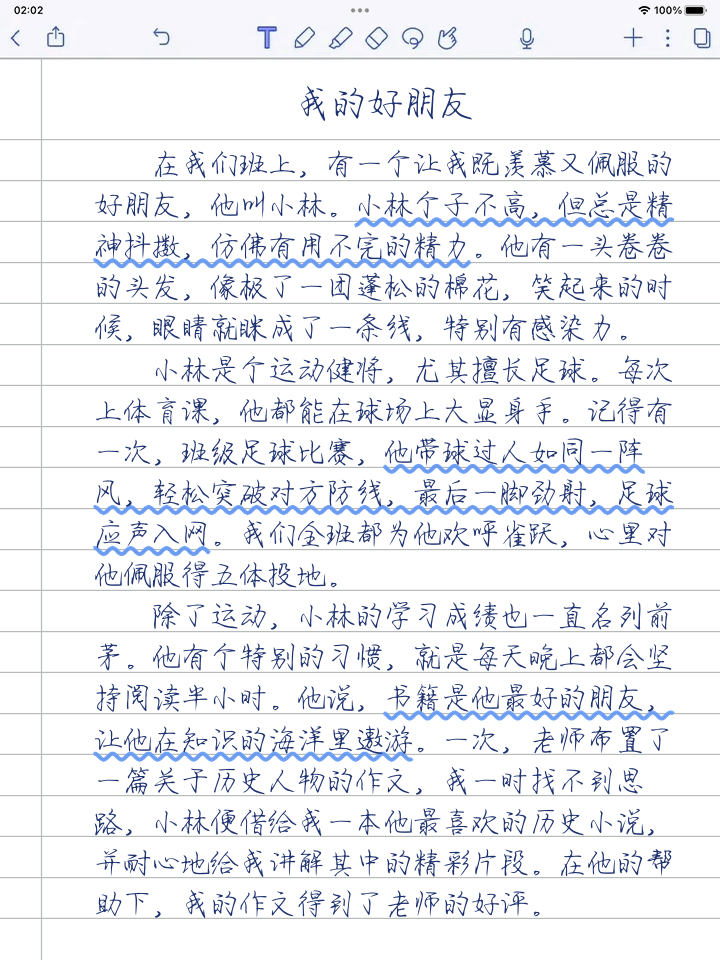 02:02
100%
我的好朋友
在我们班上，有一个让我既羡慕又佩服的
好朋友，他叫小林。小林个子不高，但总是精
神抖擞，仿佛有用不完的精力。他有一头卷卷
的头发，像极了一团蓬松的棉花，笑起来的时
候，眼睛就眯成了一条线，特别有感染力。
小林是个运动健将，尤其擅长足球。每次
上体育课，他都能在球场上大显身手。记得有
一次，班级足球比赛，他带球过人如同一阵
风，轻松突破对方防线，最后一脚劲射，足球
应声入网。我们全班都为他欢呼雀跃，心里对
他佩服得五体投地。
除了运动，小林的学习成绩也一直名列前
茅。他有个特别的习惯，就是每天晚上都会坚
持阅读半小时。他说，书籍是他最好的朋友，
让他在知识的海洋里遨游。一次，老师布置了
一篇关于历史人物的作文，我一时找不到思
路，小林便借给我一本他最喜欢的历史小说，
并耐心地给我讲解其中的精彩片段。在他的帮
助下，我的作文得到了老师的好评。